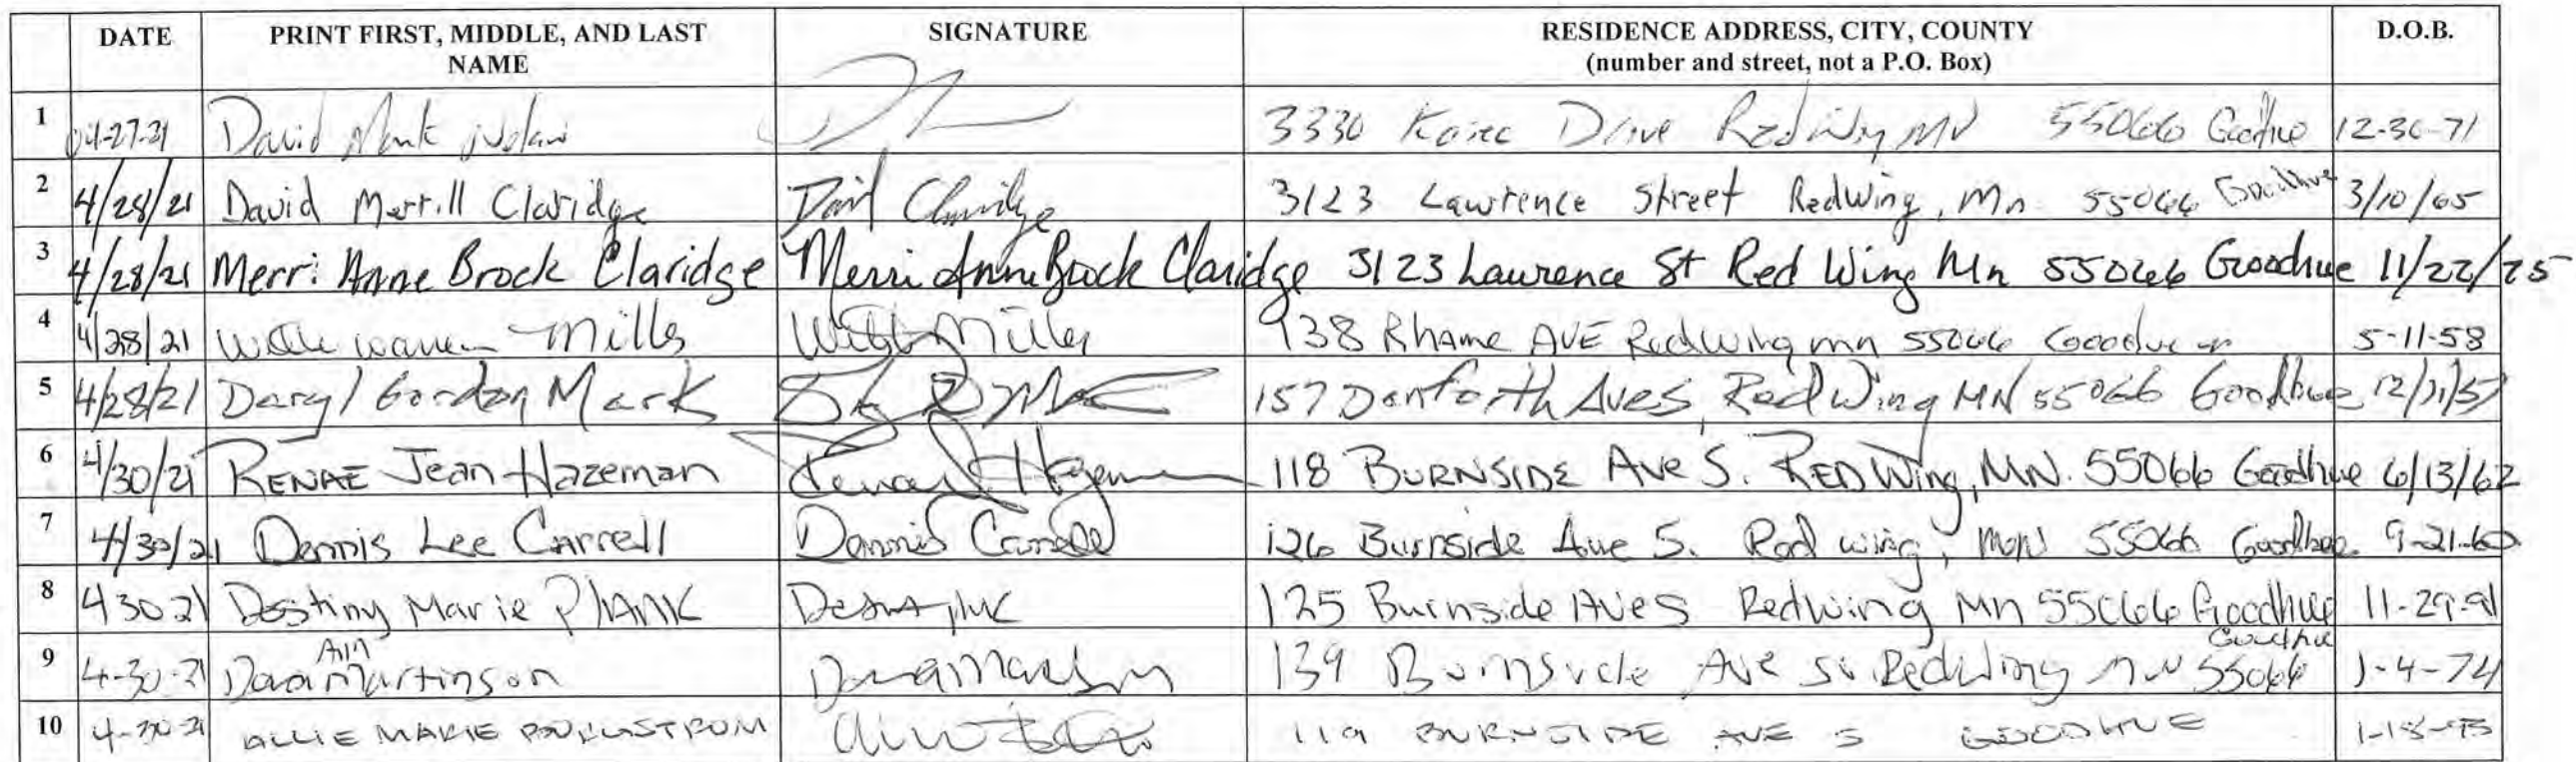 DATE PRINT FIRST, MIDDLE, AND LAST NAME SIGNATURE RESIDENCE ADDRESS, CITY, COUNTY (number and street, not a P.O. Box) D.O.B.
1 04-27-21 David Mark Nolan 3330 Drive Red Wing MN 55066 Goodhue 12-30-71
2 4/28/21 David Merrill Claridge David Claridge 3123 Lawrence Street Redwing, Mn 55066 Goodhue 3/10/65
3 4/28/21 Merri Anne Brock Claridge Merri Anne Brock Claridge 3123 Lawrence St Red Wing Mn 55066 Goodhue 11/22/75
4 4/28/21 Mills Mills 938 Rhame AVE Redwing mn 55066 Goodhue 5-11-58
5 4/28/21 Daryl Gordon Mark 157 Danforth Ave S, Red Wing MN 55066 Goodhue
6 4/30/21 RENAE Jean Hazeman 118 BURNSIDE Ave S. RED Wing, MN. 55066 Goodhue 6/13/62
7 4/30/21 Dennis Lee Carrell Dennis Carrell 126 Burnside Ave S. Red wing, MN 55066 Goodhue 9-21-60
8 4 30 21 Destiny Marie PlANK 125 Burnside Ave S Redwing Mn 55066 Goodhue 11-29-91
9 4-30-21 Dana Ann Martinson Dana 139 Burnside Ave So Redwing MN 55066 Goodhue 1-4-74
10 4-30-21 ALLIE MARIE 119 BURNSIDE AVE S GOODHUE